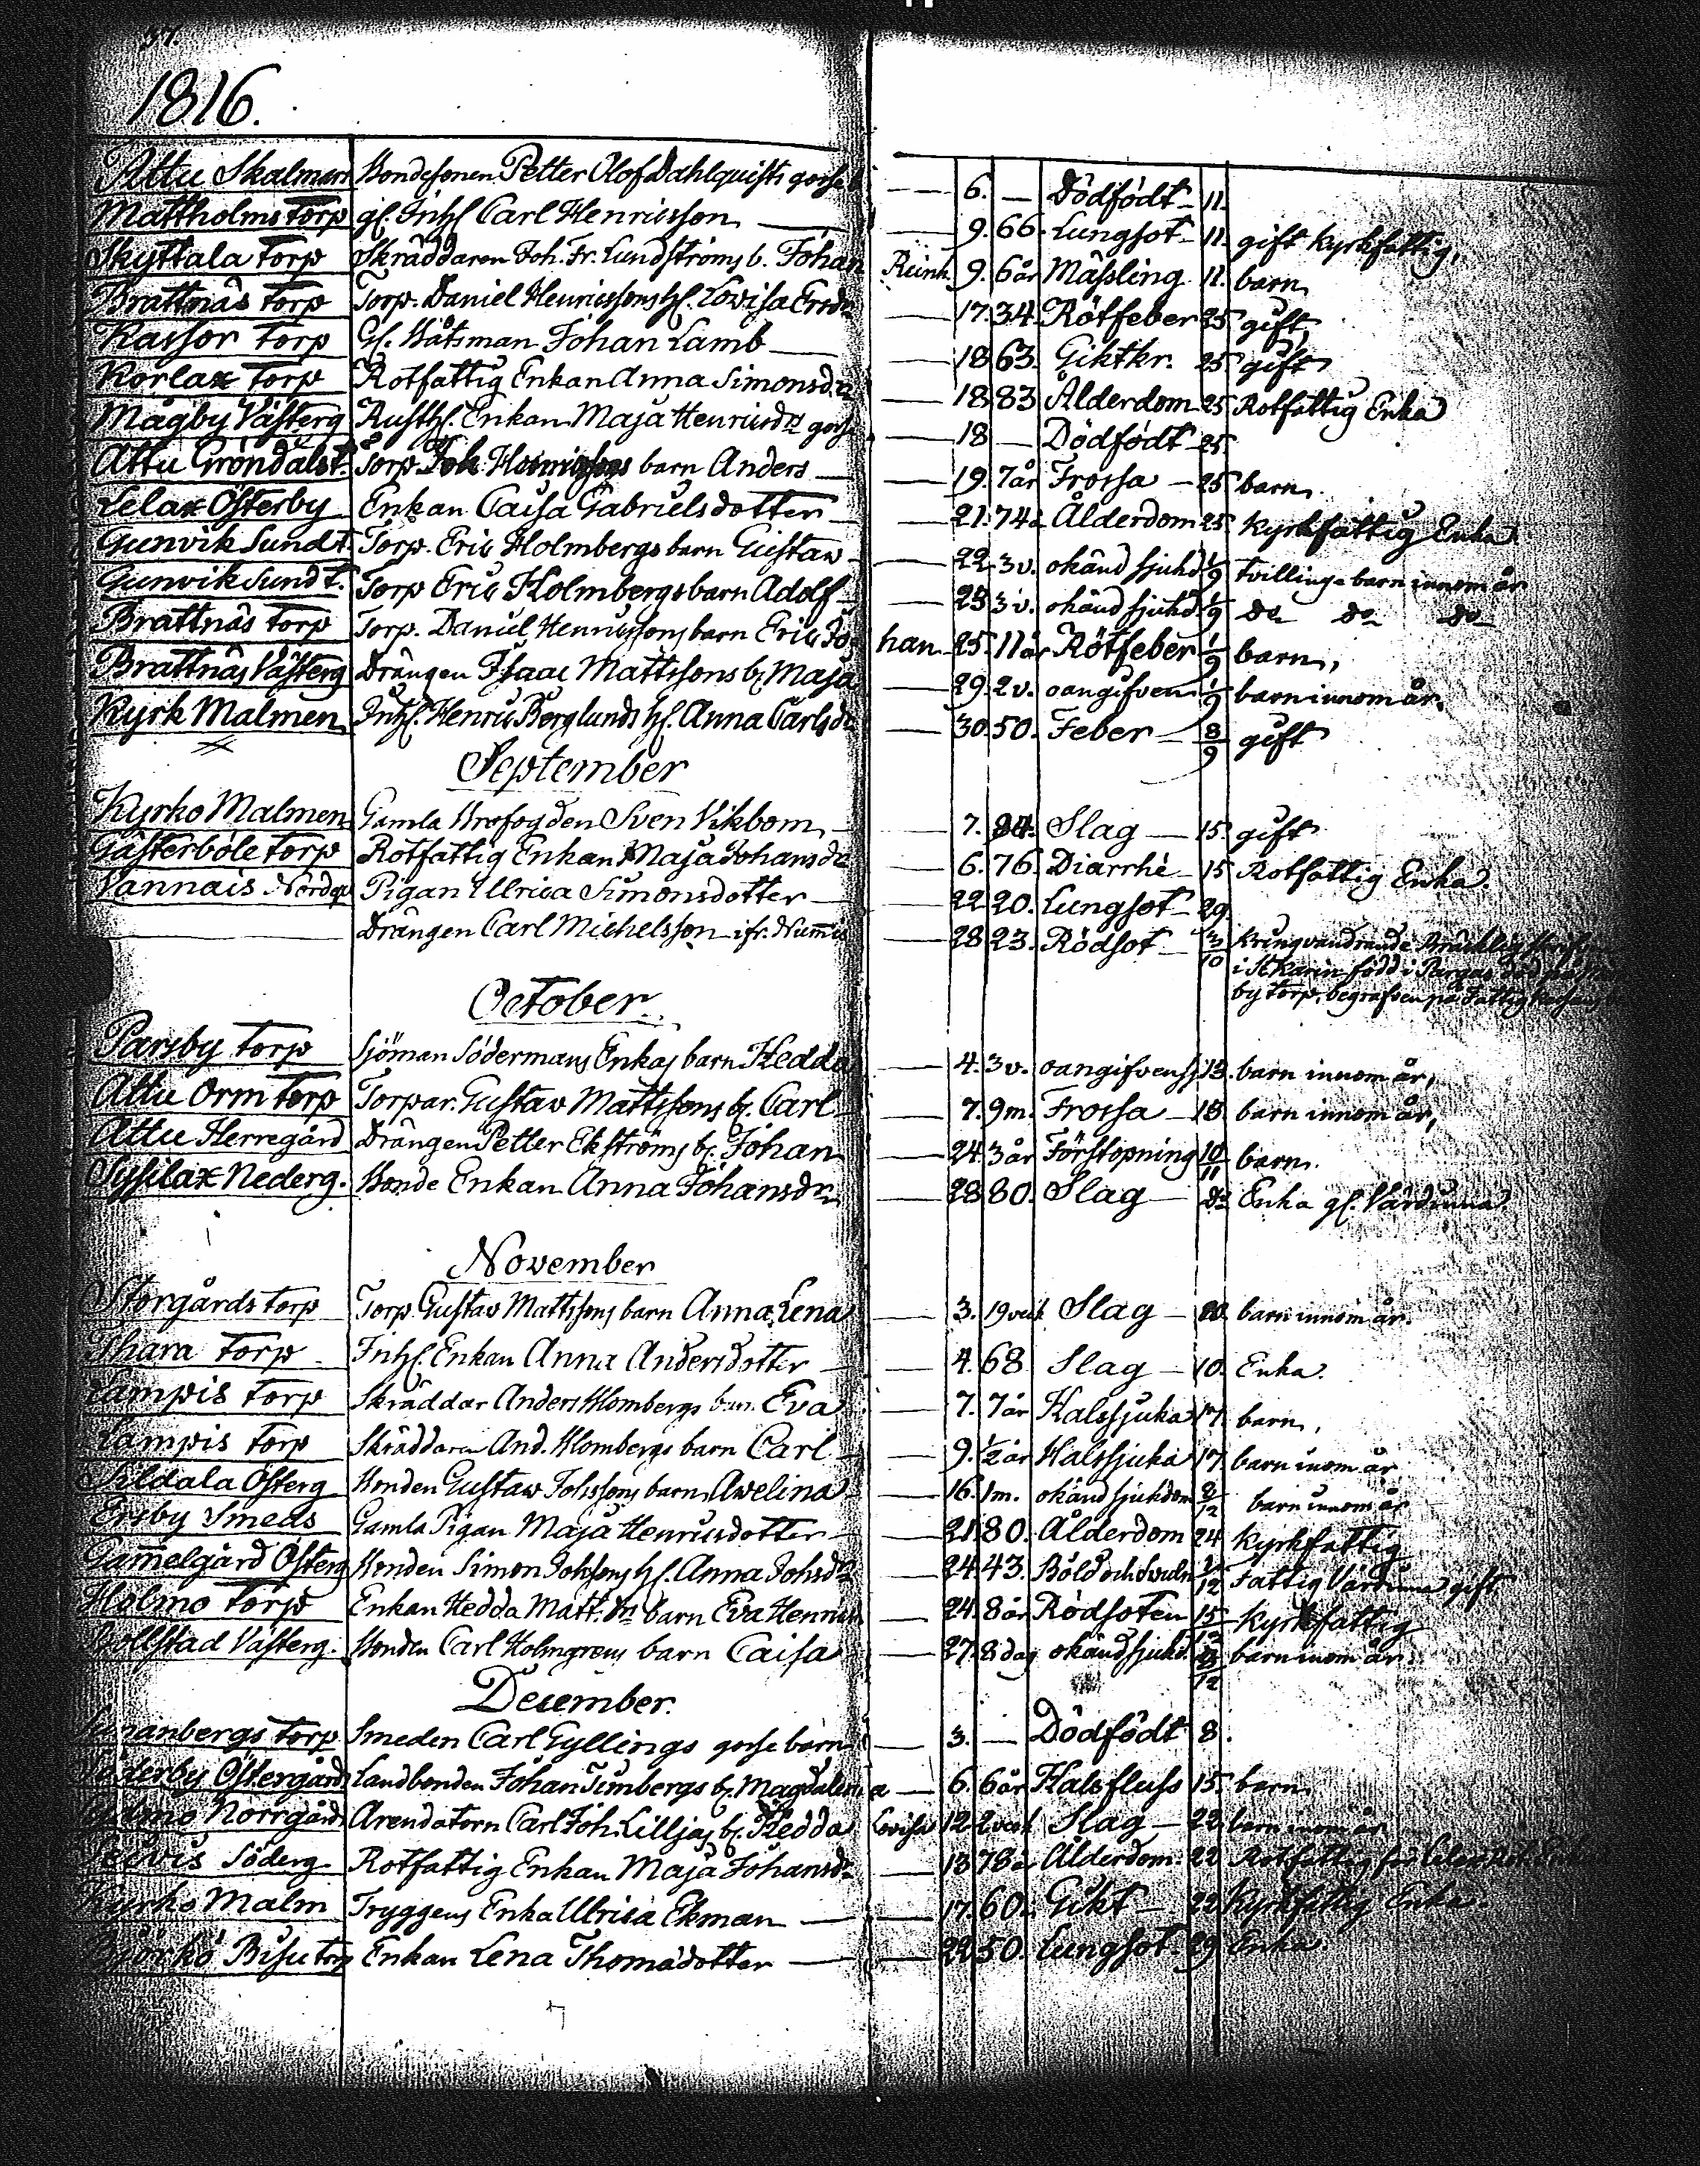 37.
1816.
Attu Skalmars Bondesonen Petter Olof Dahlquists gosse b — 6. — Dödfödt 11.
Mattholms Torp gl. Inhs. Carl Henricsson — 9. 66. Lungsot 11. gift kyrkfattig,
Skyttala Torp Skräddaren Joh. Fr. Lundströms b. Johan Reinh. 9. 6 år Mässling 11. barn,
Brattnäs Torp Torp. Daniel Henricssons h. Lovisa Ersdr — 17. 34. Rötfeber 25 gift,
Kassor Torp Gl. Båtsman Johan Lamb — 18 63. Giktkr. 25 gift
Korlax Torp Rotfattig Enkan Anna Simonsdr — 18. 83 Ålderdom 25 Rotfattig Enka
Mågby Västerg Rusth. Enkan Maja Henricsdr gosse — 18 — Dödfödt 25.
Attu Gröndalst. Torp. Joh. barn Anders — 19. 7 år Frossa — 25 barn.
Lelax Österby Enkan Caisa Gabrielsdotter — 21. 74 å Ålderdom 25. kyrkfattig Enka
Gunvik Sund t. Torp. Eric Holmbergs barn Gustaw — 22 3 v. okänd sjukd. 1/9 tvillinge barn innom år
Gunvik Sund t. Torp Eric Holmbergs barn Adolf — 23 3 v. okänd sjukd. 1/9 do do do
Brattnäs Torp Torp. Daniel Henricssons barn Eric Jo- han 25. 11 år Rötfeber 1/9 barn,
Brattnäs Västerg Drängen Isaac Mattssons b. Maja — 29. 2 v. oangifven 1/9 barn innom år.
Kyrk Malmen Inhs. Henric Berglunds h. Anna Carlsdr — 30. 50. Feber — 8/9 gift
September
Kyrko Malmen Gamla Brofogden Sven Vikbom — 7. 84. Slag — 15. gift
Gästerböle Torp Rotfattig Enkan Maja Johansdr — 6. 76. Diarrhé — 15 Rotfattig Enka.
Vannais Nördg Pigan Ulrica Simonsdotter — 22 20. Lungsot — 29.
Drängen Carl Michelsson ifr. Nummis — 28 23. Rödsot — 3/10 Kringvandrande
i St Karin född i Pargas död
by torp, begrafven på Fattig
October.
Parsby Torp Sjöman Södermans Enkas barn Hedda — 4. 3 v. oangifven sj. 13. barn innom år,
Attu Orm Torp Torpar. Gustav Mattssons b. Carl — 7. 9 m. Frossa — 13. barn innom år,
Attu Herregård Drängen Petter Ekströms b. Johan — 24 3 år Förstopning 10/11 barn.
Sysilax Nederg. Bonde Enkan Anna Johansdr — 28 80. Slag — do Enka gl. Värdinna
November
Storgårds Torp Torp. Gustav Mattssons barn Anna Lena — 3. 19 veck Slag — 10. barn innom år.
Ihara Torp Inhs. Enkan Anna Andersdotter — 4. 68 Slag — 10. Enka.
Lampis Torp Skräddar Anders Blombergs barn Eva — 7. 7 år Halssjuka 17 barn,
Lampis Torp Skräddaren And. Blombergs barn Carl — 9. 1/2 år Halssjuka 17 barn inom år
Sildala Österg Bonden Gustaw Johssons barn Awelina — 16. 1 m. okänd sjukdom 2/12 barn innom år
Ersby Smeds Gamla Pigan Maja Henricsdotter — 21 80. Ålderdom 24 kyrkfattig
Gammelgård Österg Bonden Simon Johssons h. Anna Johsdr — 24 43. Böld och 1/12 Fattig Värdinna gift
Holmo Torp Enkan Hedda Matt. dr barn Eva Henrics — 24. 8 år Rödsoten 15/12 kyrkfattig
Bollstad Västerg. Bonden Carl Holmgrens barn Caisa — 27. 8 dag okänd sjukd. /12 barn inom år.
December.
Torp Smeden Carl Gyllings gosse barn — 3. — Dödfödt 8.
Söderby Östergård Landbonden Johan Timbergs b. Magdalena — 6. 6 år Halsfluss 15. barn.
Norrgård Arendatorn Carl Joh. Liljas b. Hedda Lovisa 12 2 veck Slag — 22 barn inom år
Söderg Rotfattig Enkan Maja Johansdr — 13 78 å Ålderdom. 22 Rotfattig
Kyrko Malm Tryggens Enka Ulrica Ekman — 17. 60. Gikt — 22 Kyrkfattig Enka.
Björkö Bisu torp Enkan Lena Thomasdotter — 22 50. Lungsot. 29 Enka.